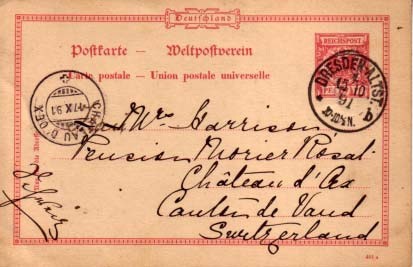 Deutschland
Postkarte – Weltpostverein
Carte postale – Union postale universelle
REICHSPOST
DRESDEN-ALTST.
10
91
b
CHATEAU D'OEX
IX 91
Mrs Harrison
Pension Morier Rosat
Château d'Oex
Canton de Vaud
Switzerland